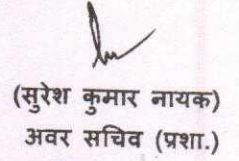 (सुरेश कुमार नायक)
अवर सचिव (प्रशा.)